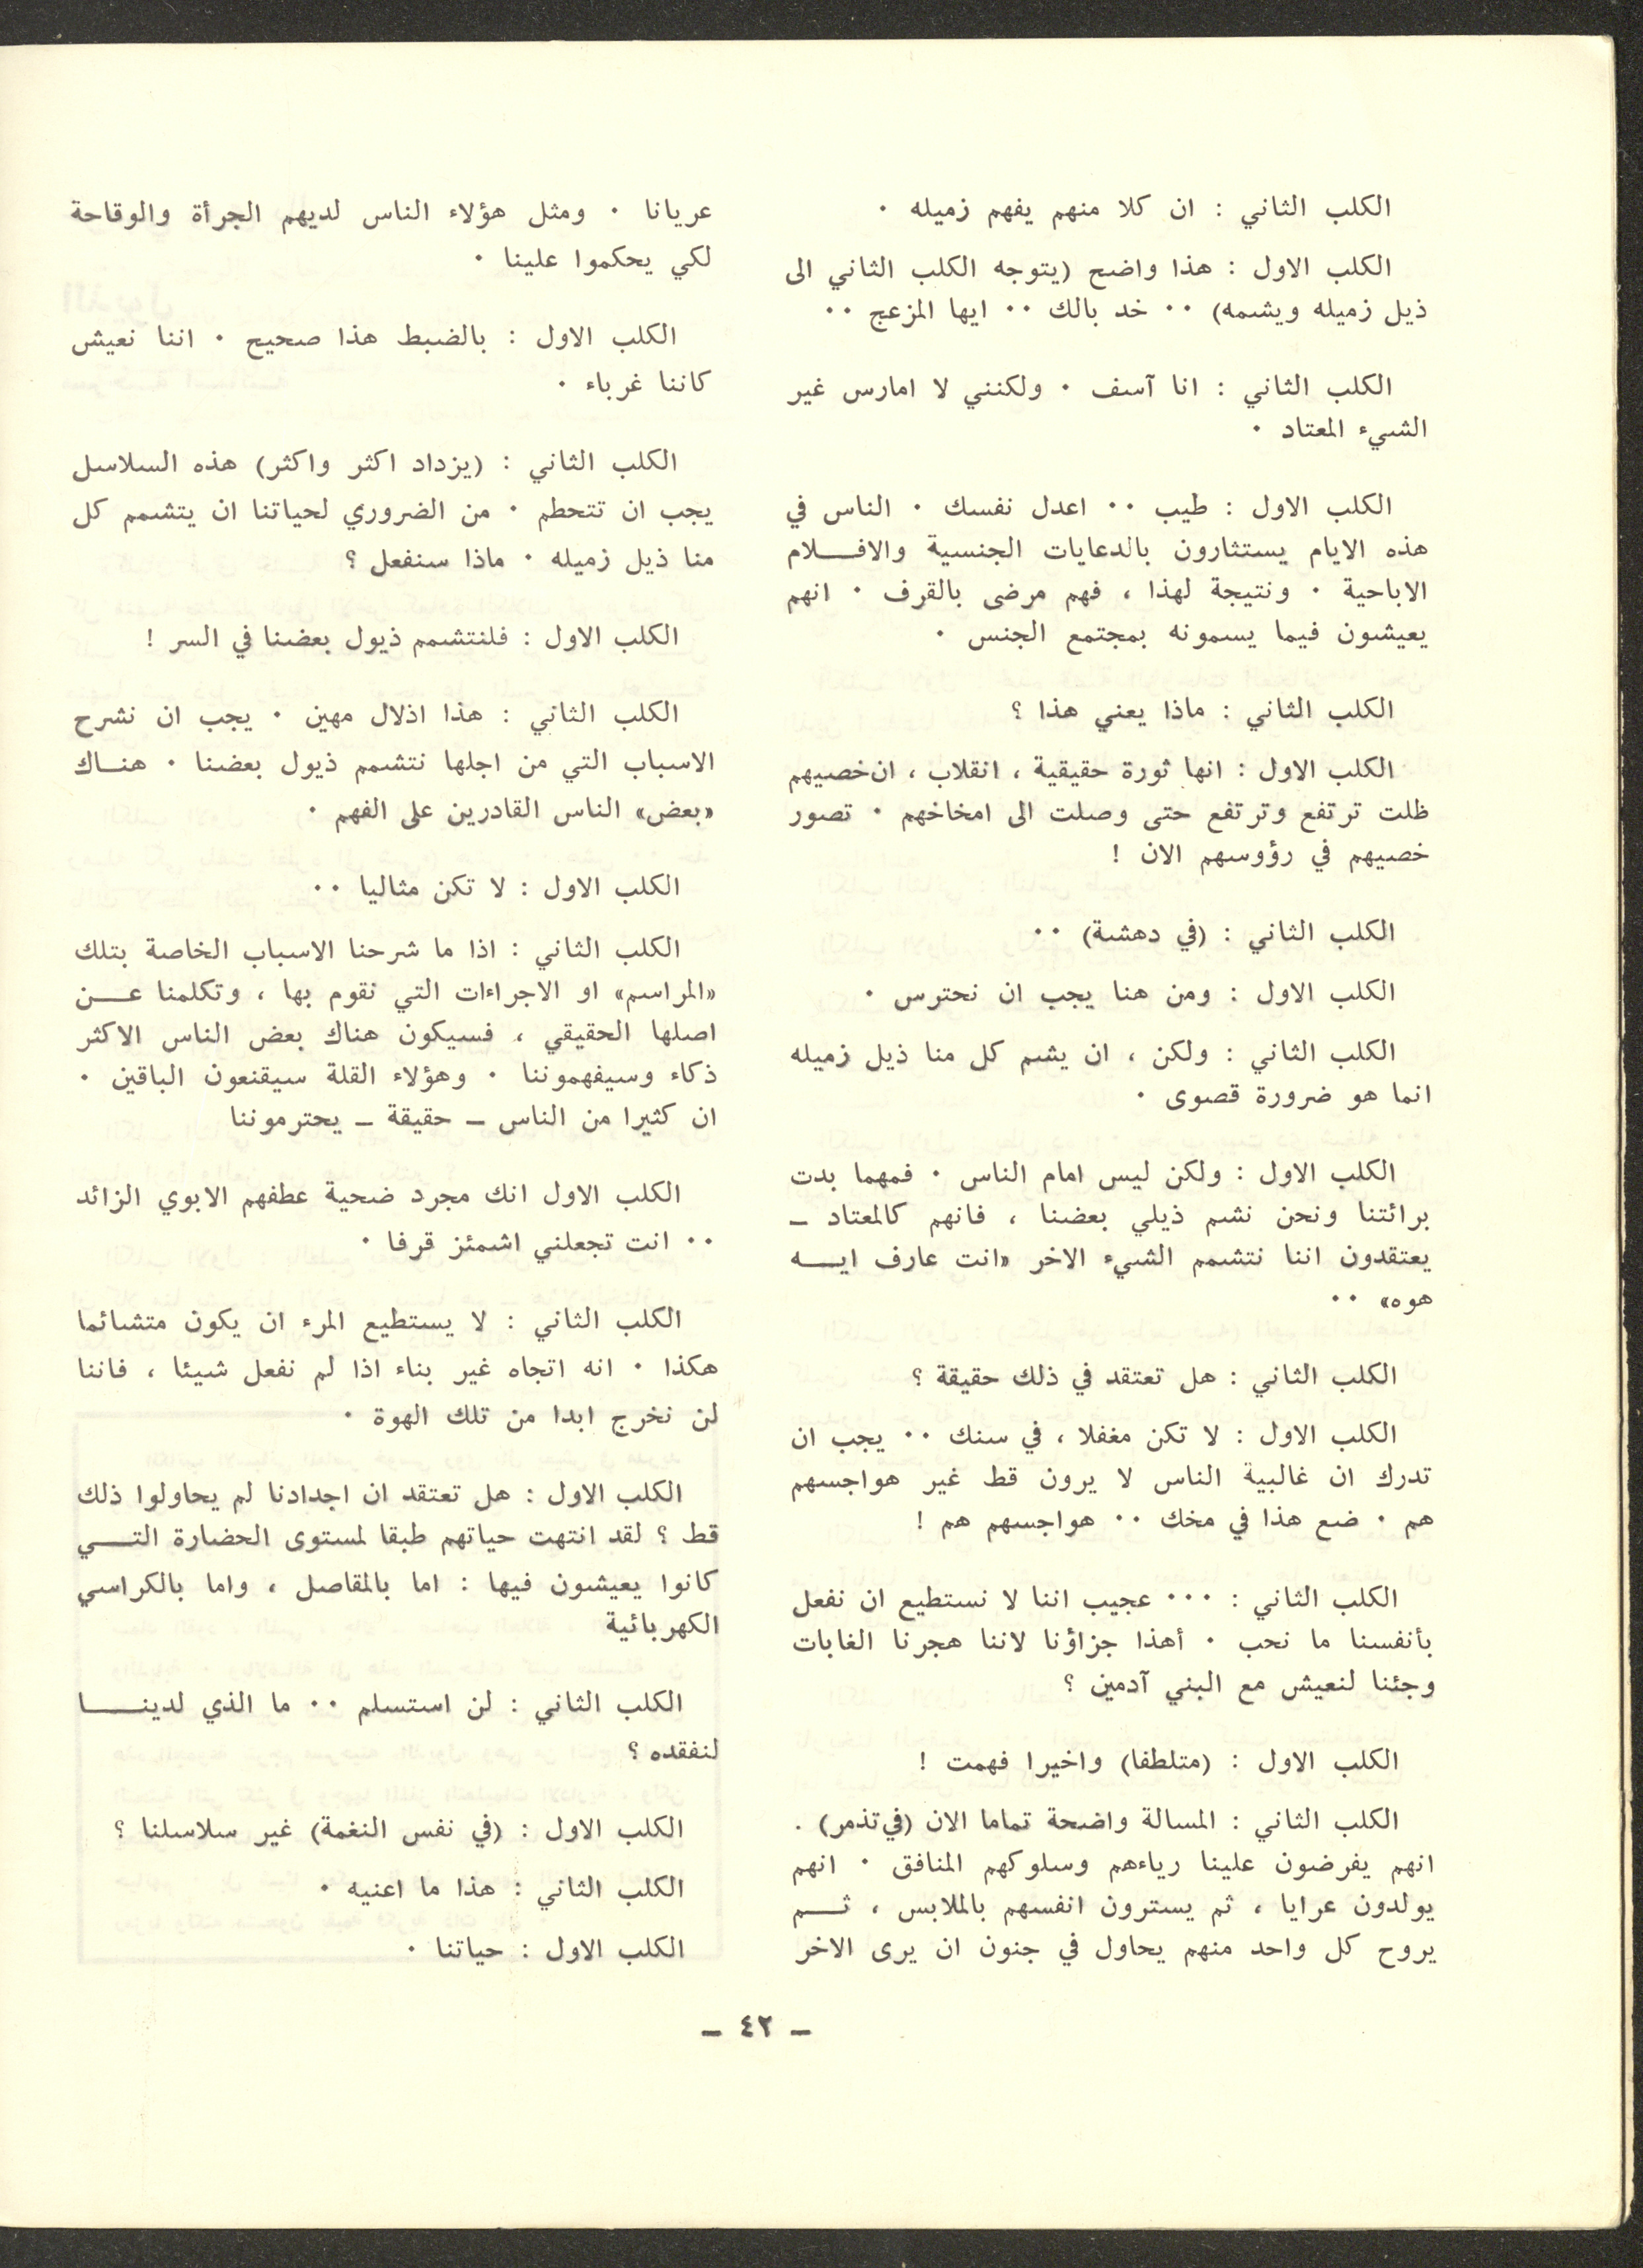 الكلب الثاني : ان كلا منهم يفهم زميله ٠
الكلب الاول : هذا واضح (يتوجه الكلب الثاني الى
ذيل زميله ويشمه) ٠٠ خد بالك ٠٠ ايها المزعج ٠٠
الكلب الثاني : انا آسف ٠ ولكنني لا امارس غير
الشيء المعتاد ٠
الكلب الاول : طيب ٠٠ اعدل نفسك ٠ الناس في
هذه الايام يستثارون بالدعايات الجنسية والافـــلام
الاباحية ٠ ونتيجة لهذا ، فهم مرضى بالقرف ٠ انهم
يعيشون فيما يسمونه بمجتمع الجنس ٠
الكلب الثاني : ماذا يعني هذا ؟
الكلب الاول : انها ثورة حقيقية ، انقلاب ، ان خصيهم
ظلت ترتفع وترتفع حتى وصلت الى امخاخهم ٠ تصور
خصيهم في رؤوسهم الان !
الكلب الثاني : (في دهشة) ٠٠
الكلب الاول : ومن هنا يجب ان نحترس ٠
الكلب الثاني : ولكن ، ان يشم كل منا ذيل زميله
انما هو ضرورة قصوى ٠
الكلب الاول : ولكن ليس امام الناس ٠ فمهما بدت
برائتنا ونحن نشم ذيلي بعضنا ، فانهم كالمعتاد ـ
يعتقدون اننا نتشمم الشيء الاخر «انت عارف ايـــه
هوه» ٠٠
الكلب الثاني : هل تعتقد في ذلك حقيقة ؟
الكلب الاول : لا تكن مغفلا ، في سنك ٠٠ يجب ان
تدرك ان غالبية الناس لا يرون قط غير هواجسهم
هم ٠ ضع هذا في مخك ٠٠ هواجسهم هم !
الكلب الثاني : ٠٠٠ عجيب اننا لا نستطيع ان نفعل
بأنفسنا ما نحب ٠ أهذا جزاؤنا لاننا هجرنا الغابات
وجئنا لنعيش مع البني آدمين ؟
الكلب الاول : (متلطفا) واخيرا فهمت !
الكلب الثاني : المسالة واضحة تماما الان (في تذمر) .
انهم يفرضون علينا رياءهم وسلوكهم المنافق ٠ انهم
يولدون عرايا ، ثم يسترون انفسهم بالملابس ، ثـــم
يروح كل واحد منهم يحاول في جنون ان يرى الاخر
عريانا ٠ ومثل هؤلاء الناس لديهم الجرأة والوقاحة
لكي يحكموا علينا ٠
الكلب الاول : بالضبط هذا صحيح ٠ اننا نعيش
كاننا غرباء ٠
الكلب الثاني : (يزداد اكثر واكثر) هذه السلاسل
يجب ان تتحطم ٠ من الضروري لحياتنا ان يتشمم كل
منا ذيل زميله ٠ ماذا سنفعل ؟
الكلب الاول : فلنتشمم ذيول بعضنا في السر !
الكلب الثاني : هذا اذلال مهين ٠ يجب ان نشرح
الاسباب التي من اجلها نتشمم ذيول بعضنا ٠ هنــاك
«بعض» الناس القادرين على الفهم ٠
الكلب الاول : لا تكن مثاليا ٠٠
الكلب الثاني : اذا ما شرحنا الاسباب الخاصة بتلك
«المراسم» او الاجراءات التي نقوم بها ، وتكلمنا عـــن
اصلها الحقيقي ، فسيكون هناك بعض الناس الاكثر
ذكاء وسيفهموننا ٠ وهؤلاء القلة سيقنعون الباقين ٠
ان كثيرا من الناس ـ حقيقة ـ يحترموننا
الكلب الاول انك مجرد ضحية عطفهم الابوي الزائد
٠٠ انت تجعلني اشمئز قرفا ٠
الكلب الثاني : لا يستطيع المرء ان يكون متشائما
هكذا ٠ انه اتجاه غير بناء اذا لم نفعل شيئا ، فاننا
لن نخرج ابدا من تلك الهوة ٠
الكلب الاول : هل تعتقد ان اجدادنا لم يحاولوا ذلك
قط ؟ لقد انتهت حياتهم طبقا لمستوى الحضارة التـــي
كانوا يعيشون فيها : اما بالمقاصل ، واما بالكراسي
الكهربائية
الكلب الثاني : لن استسلم ٠٠ ما الذي لدينـــــا
لنفقده ؟
الكلب الاول : (في نفس النغمة) غير سلاسلنا ؟
الكلب الثاني : هذا ما اعنيه ٠
الكلب الاول : حياتنا ٠
ـ ٤٢ ـ